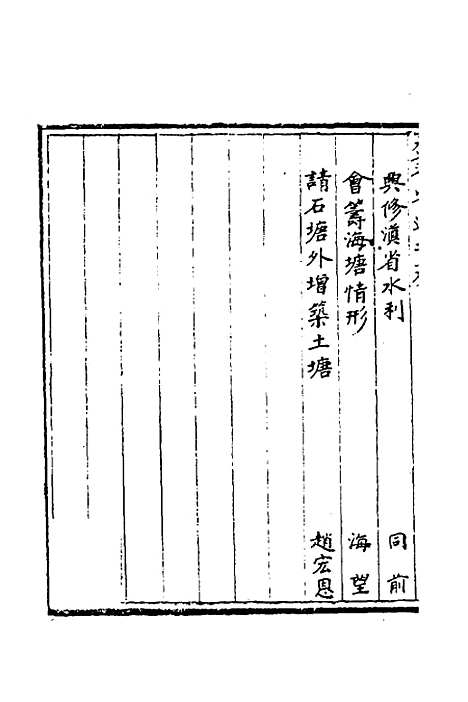 興修滇省水利 同前
會籌海塘情形 海望
請石塘外增築土塘 趙宏恩